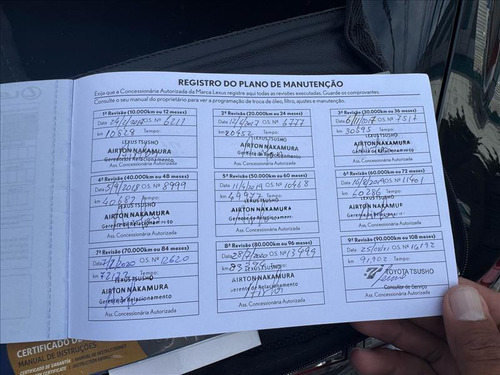 REGISTRO DO PLANO DE MANUTENÇÃO
Exija que a Concessionária Autorizada da Marca Lexus registre aqui todas as revisões executadas. Guarde os comprovantes.
Consulte o seu manual do proprietário para ver a programação de troca de óleo, filtro, ajustes e manutenção.
1ª Revisão (10.000km ou 12 meses)
Data OS. Nº 6211
km 10628 Tempo:
LEXUS TSUSHO
AIRTON NAKAMURA
Gerente de Relacionamento
Ass. Concessionária Autorizada
2ª Revisão (20.000km ou 24 meses)
Data OS. Nº 6777
km 20652 Tempo:
LEXUS TSUSHO
AIRTON NAKAMURA
Gerente de Relacionamento
Ass. Concessionária Autorizada
3ª Revisão (30.000km ou 36 meses)
Data OS. Nº 7517
km 30695 Tempo:
LEXUS TSUSHO
AIRTON NAKAMURA
Gerente de Relacionamento
Ass. Concessionária Autorizada
4ª Revisão (40.000km ou 48 meses)
Data 5/9/2018 O.S. Nº 8999
km 40687 Tempo:
LEXUS TSUSHO
AIRTON NAKAMURA
Gerente de Relacionamento
Ass. Concessionária Autorizada
5ª Revisão (50.000km ou 60 meses)
Data OS. Nº 10468
km 49977 Tempo:
LEXUS TSUSHO
AIRTON NAKAMURA
Gerente de Relacionamento
Ass. Concessionária Autorizada
6ª Revisão (60.000km ou 72 meses)
Data OS. Nº 11401
km 60286 Tempo:
LEXUS TSUSHO
AIRTON NAKAMURA
Gerente de Relacionamento
Ass. Concessionária Autorizada
7ª Revisão (70.000km ou 84 meses)
Data OS. Nº 12620
km Tempo:
LEXUS TSUSHO
AIRTON NAKAMURA
Gerente de Relacionamento
Ass. Concessionária Autorizada
8ª Revisão (80.000km ou 96 meses)
Data OS. Nº 13999
km Tempo:
LEXUS TSUSHO
AIRTON NAKAMURA
Gerente de Relacionamento
Ass. Concessionária Autorizada
9ª Revisão (90.000km ou 108 meses)
Data OS. Nº 16192
km 91.902 Tempo:
TOYOTA TSUSHO
Consultor de Serviço
Ass. Concessionária Autorizada
CERTIFICADO
MANUAL DE INSTRUÇÕES
CERTIFICADO DE GARANTIA